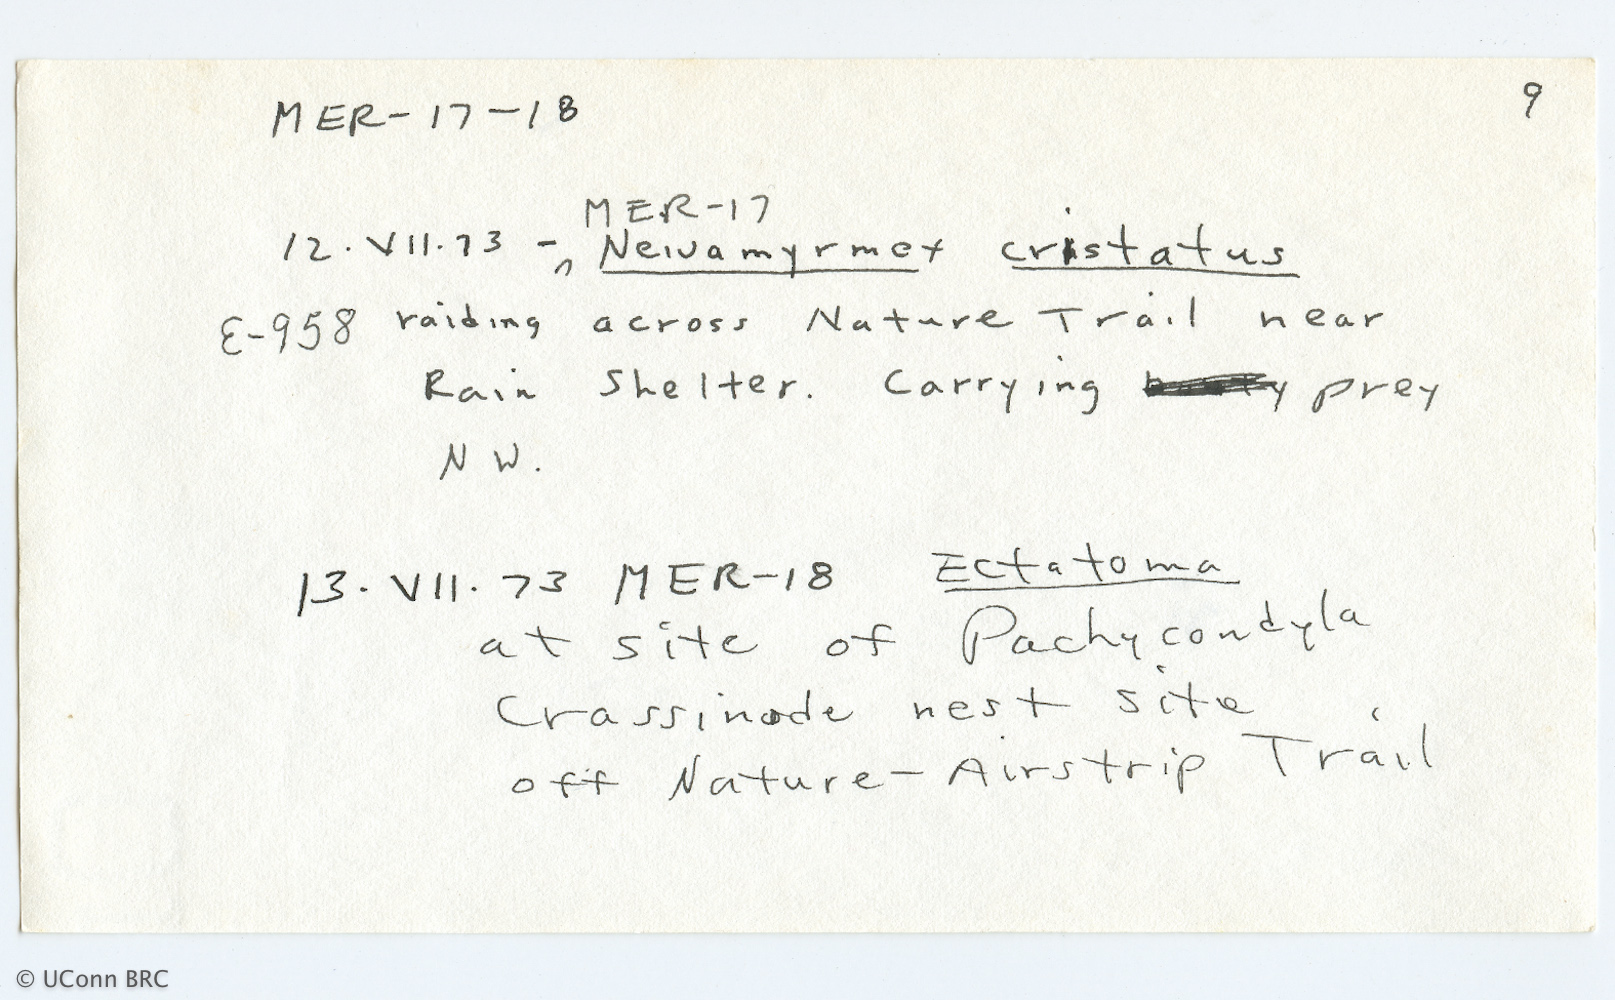 MER-17-18
9
MER-17
12.VII.73 - Neivamyrmex cristatus
E-958 raiding across Nature Trail near
Rain Shelter. Carrying prey
NW.
13.VII.73 MER-18 Ectatoma
at site of Pachycondyla
Crassinode nest site
off Nature-Airstrip Trail
© UConn BRC